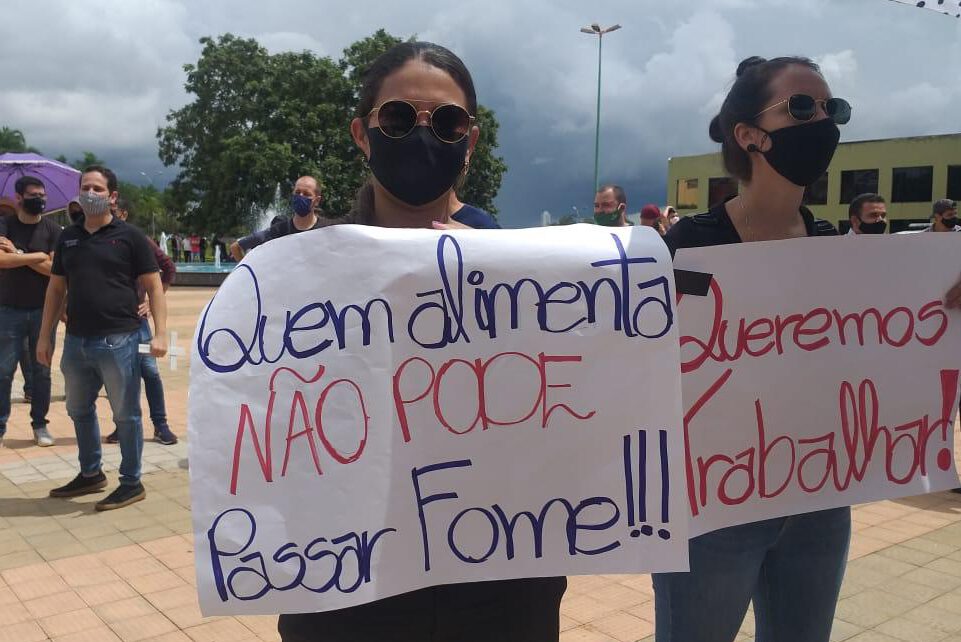 Quem alimenta
NÃO PODE
Passar Fome!!!
Queremos
Trabalhar!